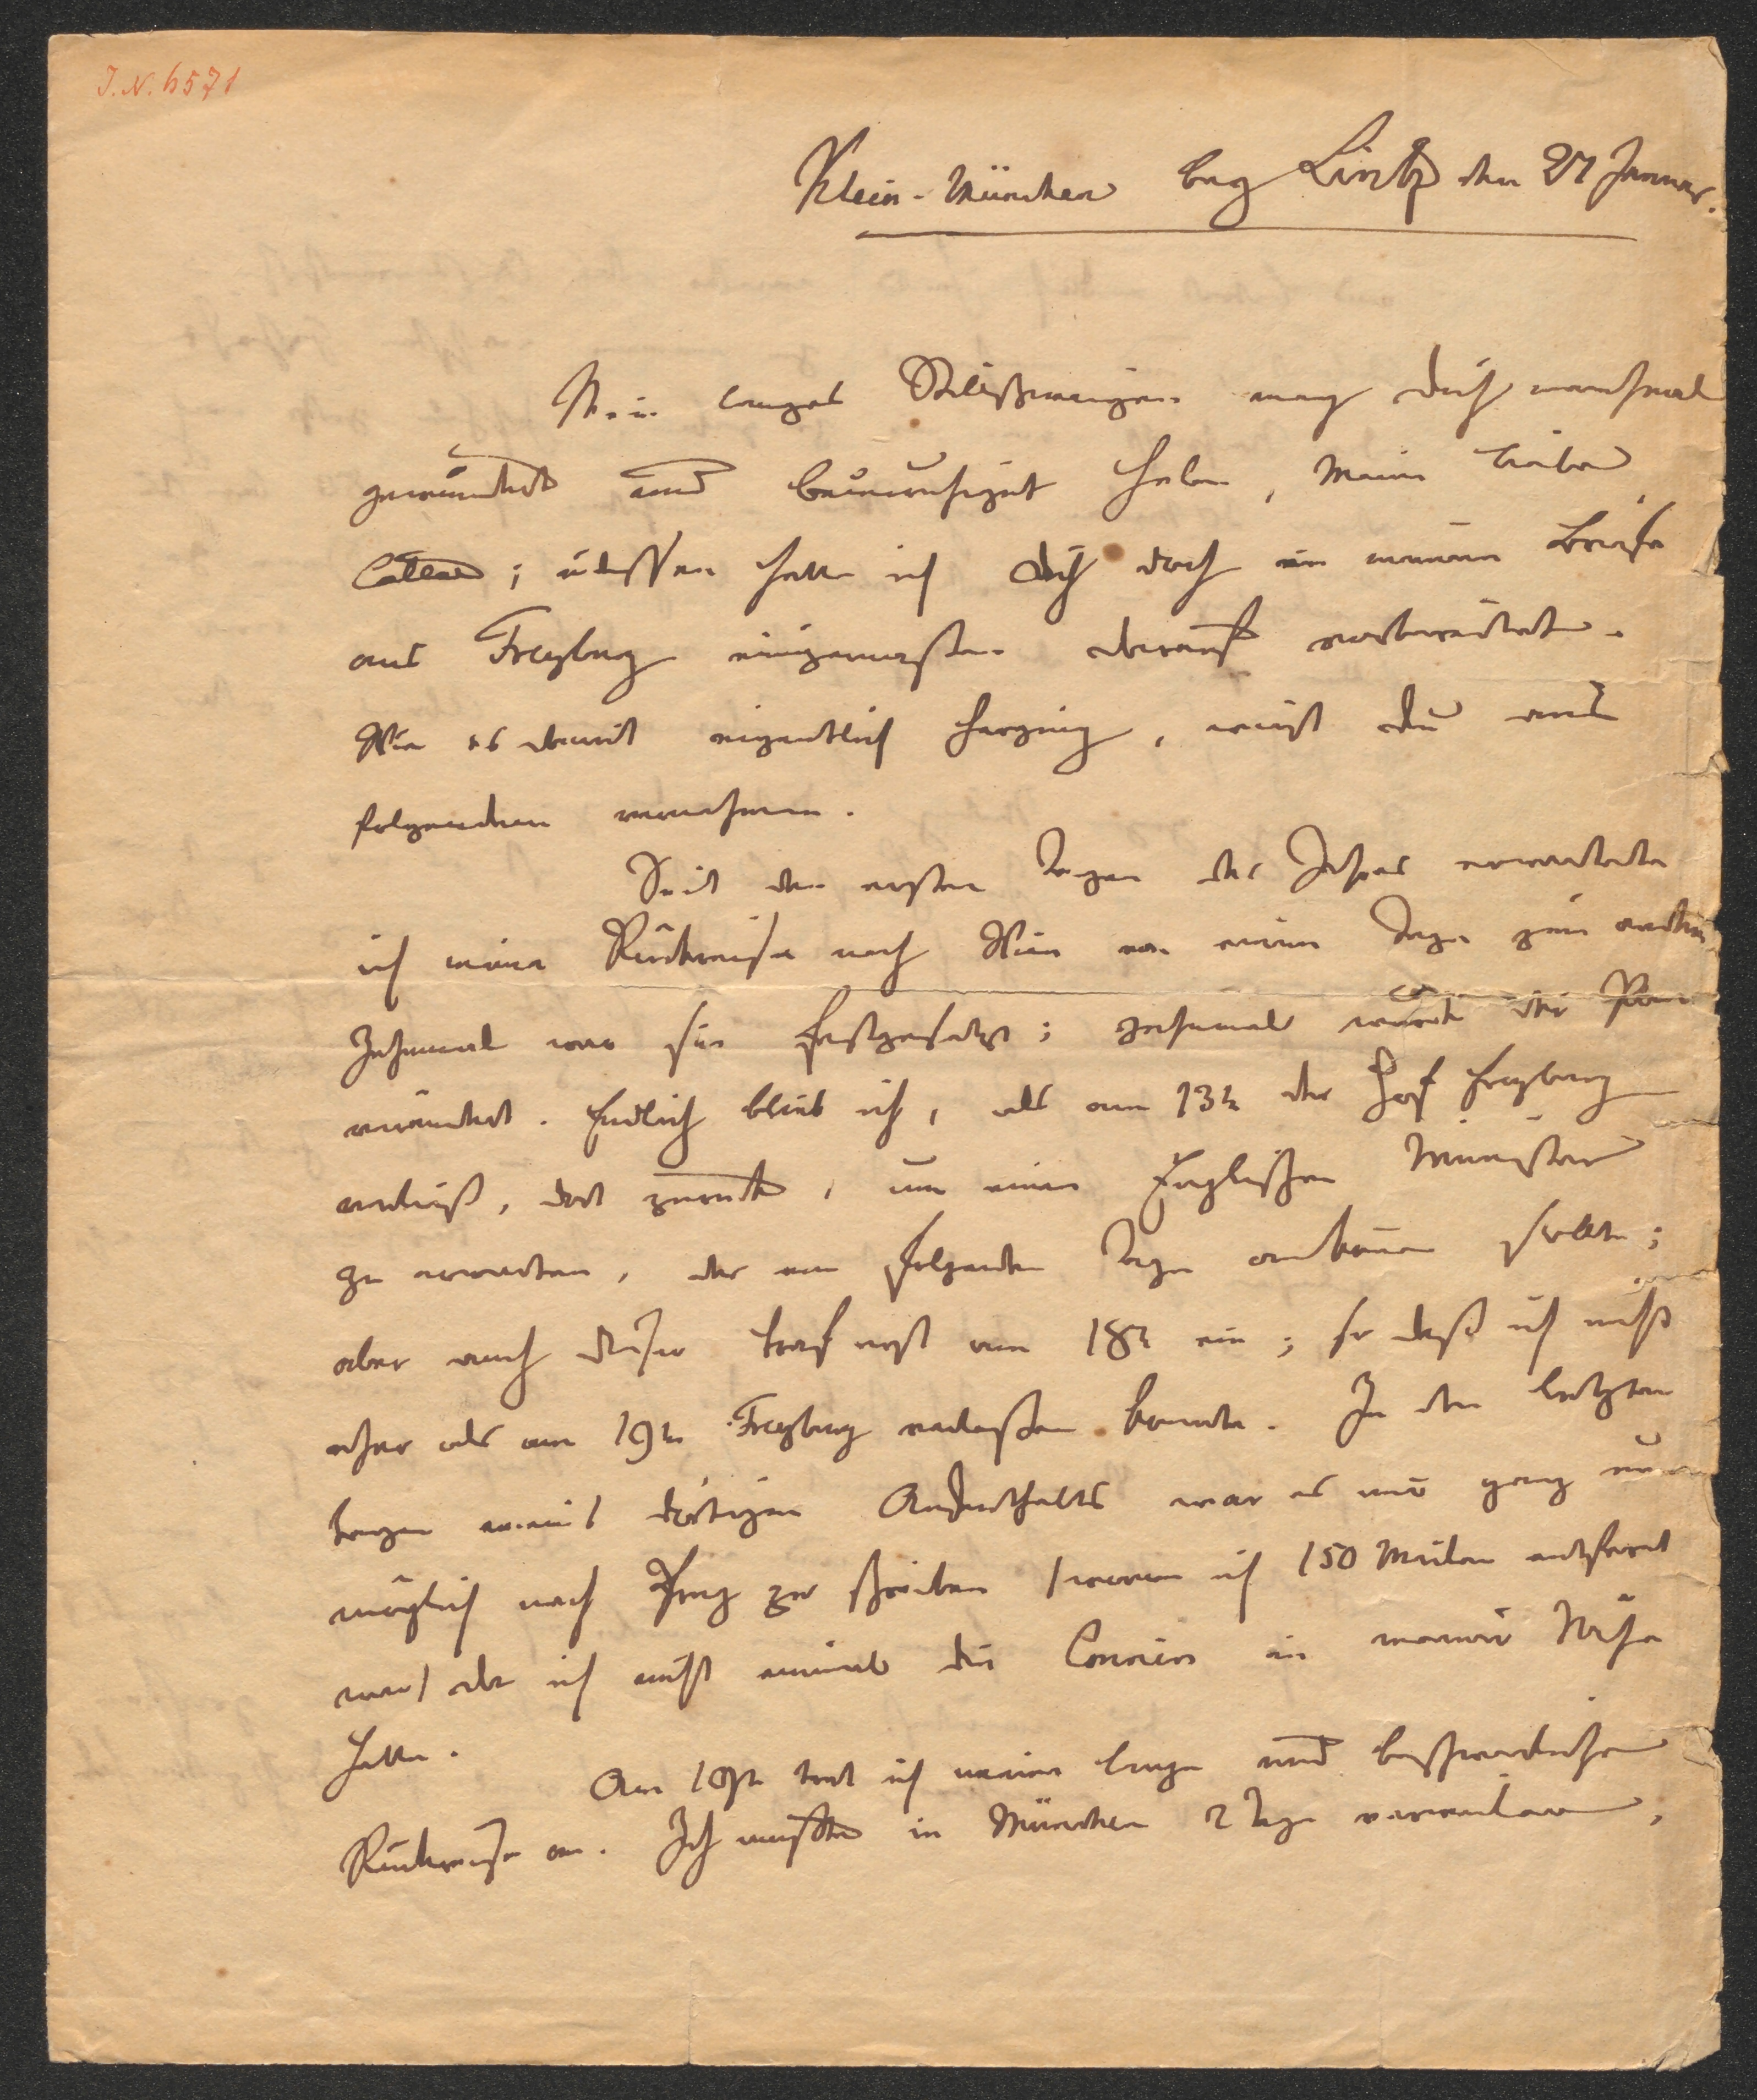 J. N. 6571
Klein-München bey Lintz den 27 Januar.
Mein langes Stillschweigen mag dich manchmal
gewundert und beunruhiget haben, mein lieber
; indessen hatte ich dich doch in meinem Briefe
aus Freyburg einigermaßen darauf vorbereitet.
Wie es damit eigentlich herging, wirst du aus
folgendem vernehmen.
Seit den ersten Tagen des Jahres erwartete
ich meine Rückreise nach Wien von einem Tage zum andern
Zehnmal war sie festgesetzt; zehnmal wurde der Plan
verändert. Endlich blieb ich, als am 13t der Hof Freyburg
verließ, dort zurück, um einen Englischen Minister
zu erwarten, der am folgenden Tage ankommen sollte;
aber auch dieser traf erst am 18t ein; so daß ich nicht
eher als am 19t Freyburg verlassen konnte. In den letzten
Tagen meines dortigen Aufenthalts war es mir ganz un
möglich nach Prag zu schreiben /wovon ich 150 Meilen entfernt
war/ da ich nicht einmal die Couriere in meiner Nähe
hatte.
Am 19t trat ich meine lange und beschwerliche
Rückreise an. Ich mußte in München 2 Tage verweilen,